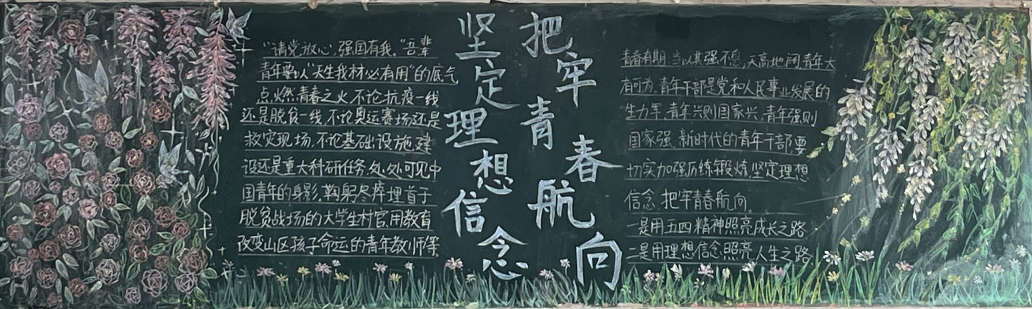 "请党放心,强国有我。"吾辈
青年要以"天生我材必有用"的底气
点燃青春之火,不论抗疫一线
还是脱贫一线,不论奥运赛场还是
救灾现场,不论基础设施建
设还是重大科研任务,处处可见中
国青年的身影,鞠躬尽瘁埋首于
脱贫战场的大学生村官,用教育
改变山区孩子命运的青年教师等
坚定理想信念
把牢青春航向
青春有期,当以其强不息,天高地阔青年大
有可为,青年干部是党和人民事业发展的
生力军,青年兴则国家兴,青年强则
国家强,新时代的青年干部要
切实加强历练锻炼,坚定理想
信念,把牢青春航向
一是用五四精神照亮成长之路
二是用理想信念照亮人生之路